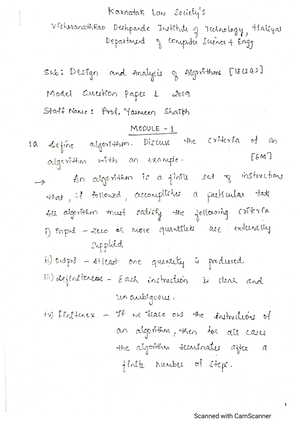 Karnatak Law Society's
Vishwanathrao Deshpande Institute of Technology, Haliyal
Department of Computer Science & Engg
Sub: Design and Analysis of Algorithms [18CS42]
Model Question Paper 1 2019
Staff Name: Prof. Yasmeen Shaikh
MODULE - 1
1a Define algorithm. Discuss the criteria of an
algorithm with an example. [6M]
→ An algorithm is a finite set of instructions
that, if followed, accomplishes a particular task
All algorithms must satisfy the following criteria
i) Input - Zero or more quantities are externally
supplied
ii) Output - Atleast one quantity is produced.
iii) Definiteness - Each instruction is clear and
unambiguous.
iv) Finiteness - If we trace out the instructions of
an algorithm, then for all cases
the algorithm terminates after a
finite number of steps.
Scanned with CamScanner